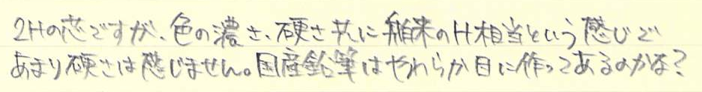 2Hの芯ですが、色の濃さ、硬さ共に舶来のH相当という感じで
あまり硬さは感じません。国産鉛筆はやわらか目に作ってあるのかな？